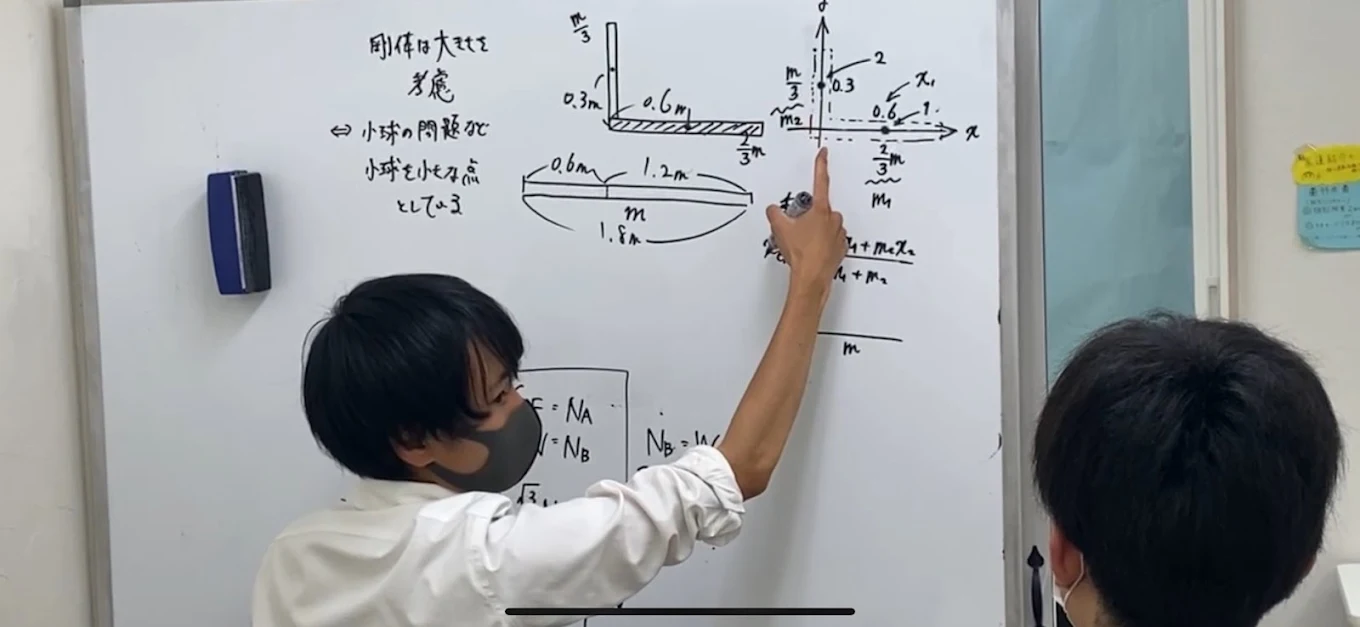 剛体は大きさを
考慮
⇔ 小球の問題など
小球を小さな点
としている
m/3
0.3m
0.6m
2/3 m
0.6m
1.2m
m
1.8m
2
m/3
0.3
m₂
x₁
0.6
1.
x
2/3 m
m₁
+ m₂x₂
+ m₂
m
= N_A
= N_B
N_B = W
√3